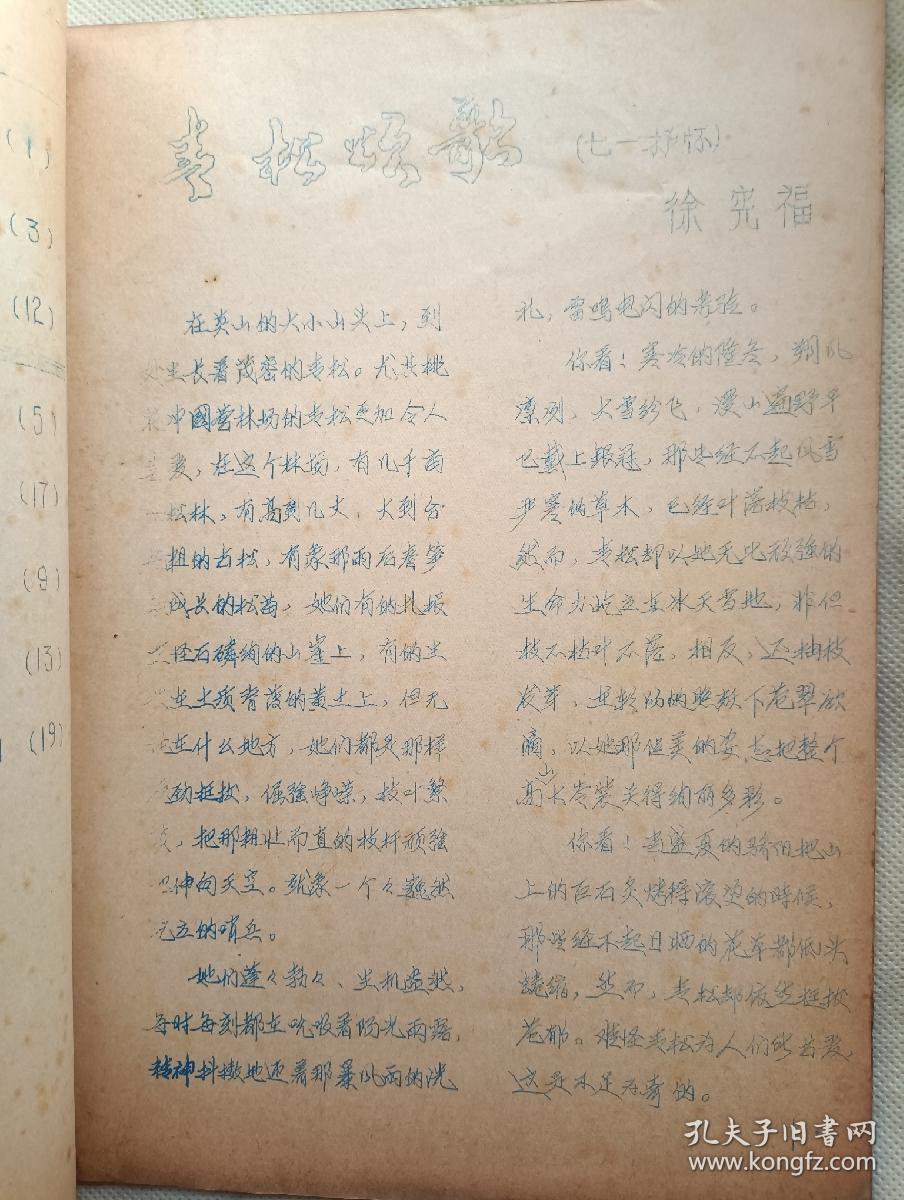 (1)
(3)
(12)
(5)
(17)
(9)
(13)
(19)
青松颂歌
(七一抒怀)
徐宪福
在英山的大小山头上，到
处生长着茂密的青松。尤其桃
中國营林场的青松更加令人
爱，在这个林场，有几千亩
松林，有高到几丈，大到合
粗的古松，有象那雨后春笋
成长的松苗，她们有的扎根
怪石磷峋的山崖上，有的生
在土质脊薄的黄土上，但无
在什么地方，她们都是那样
劲挺拔，倔强峥嵘，枝叶繁
，把那粗壮而直的枝杆顽强
伸向天空。就象一个々巍然
立的哨兵。
她们蓬々勃々、生机盎然，
每时每刻都在吮吸着阳光雨露，
精神抖擞地迎着那暴风雨的洗
礼，雷鸣电闪的考验。
你看！寒冷的隆冬，朔风
凛冽，大雪纷飞，漫山遍野早
已戴上银冠，那些经不起风雪
严寒的草木，已经叶落枝枯，
然而，青松却以她无比顽强的
生命力屹立在冰天雪地，非但
枝不枯叶不落，相反，还抽枝
发芽，在骄阳的照放下苍翠欲
滴，以她那俊美的姿态把整个
高山大岑装关得绚丽多彩。
你看！当盛夏的骄阳把山
上的巨石炙烤得滚烫的時候，
那些经不起日晒的花草都低头
蜷缩，然而，青松却依然挺拔
苍郁。难怪青松为人们所喜爱，
这是不足为奇的。
孔夫子旧书网
www.kongfz.com